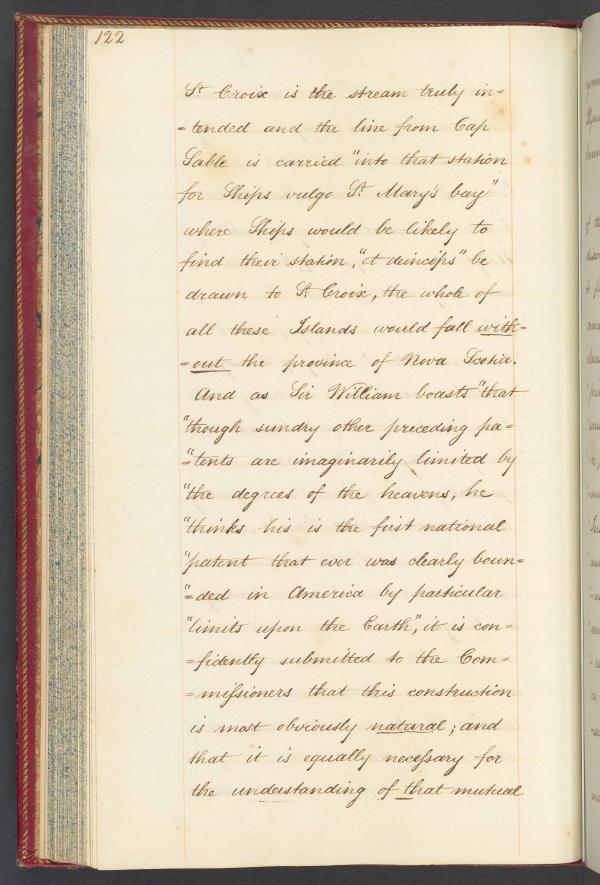 122
St Croix is the stream truly in=
=tended and the line from Cap
Sable is carried "into that station
for Ships vulgo St Mary's bay"
where Ships would be likely to
find their station, "et deinceps" be
drawn to St Croix, the whole of
all these Islands would fall with=
=out the province of Nova Scotia.
And as Sir William boasts "that
"though sundry other preceding pa=
"=tents are imaginarily limited by
"the degrees of the heavens, he
"thinks his is the first national
"patent that ever was clearly boun=
"=ded in America by particular
"limits upon the Earth", it is con=
=fidently submitted to the Com=
=missioners that this construction
is most obviously natural; and
that it is equally necessary for
the understanding of that mutual